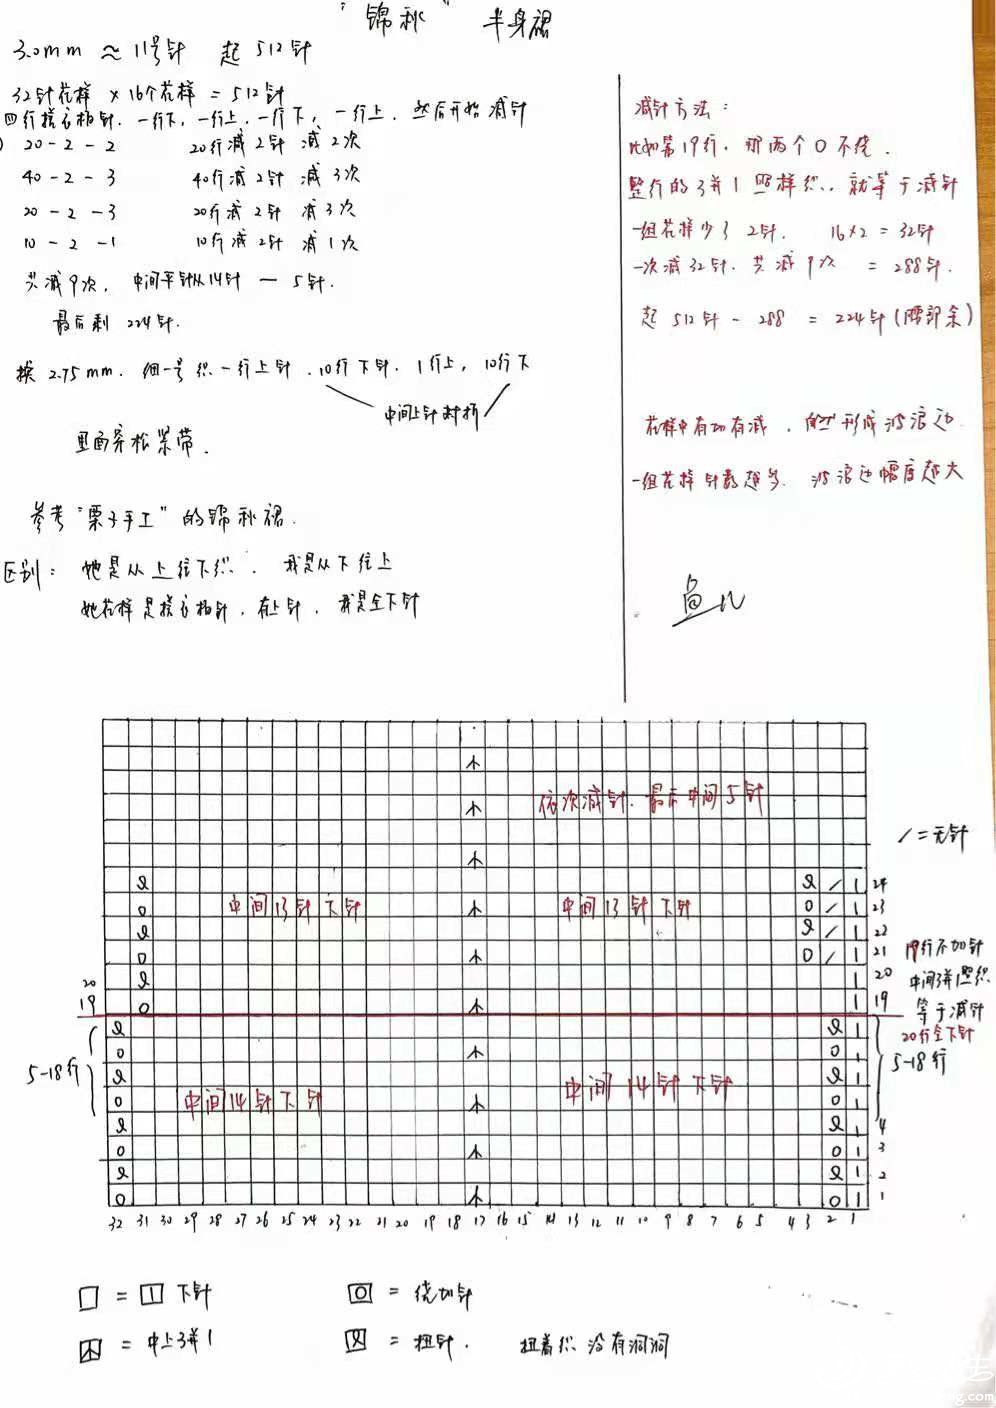 "锦秋" 半身裙
3.0mm ≈ 11号针 起512针
32针花样 × 16个花样 = 512针
四行搓衣板针. 一行下, 一行上, 一行下, 一行上. 然后开始减针
20-2-2 20行减2针 减2次
40-2-3 40行减2针 减3次
20-2-3 20行减2针 减3次
10-2-1 10行减2针 减1次
共减9次, 中间平针从14针 — 5针.
最后剩 224针.
换 2.75mm. 细一号 织一行上针. 10行下针. 1行上, 10行下
中间上针对折
里面穿松紧带.
参考"栗子手工"的锦秋裙.
区别: 她是从上往下织. 我是从下往上
她花样是搓衣板针, 有上针, 我是全下针
减针方法:
比如第19行, 那两个O不绕.
整行的3并1照样织.. 就等于减针
一组花样少了2针. 16×2=32针
一次减32针. 共减9次 = 288针.
起512针 - 288 = 224针(腰部余)
花样中有加有减, 自然形成波浪边.
一组花样针数越多. 波浪边幅度越大
依次减针. 最后中间5针
/=无针
24
中间13针下针 中间13针下针 23
22
21
19行不加针
20 20
中间3并1照织.
19 19
等于减针
20行全下针
5-18行 5-18行
中间14针下针 中间14针下针
4
3
2
1
32 31 30 29 28 27 26 25 24 23 22 21 20 19 18 17 16 15 14 13 12 11 10 9 8 7 6 5 4 3 2 1
□ = 1 下针 O = 绕加针
= 中上3并1 = 扭针. 扭着织 没有洞洞